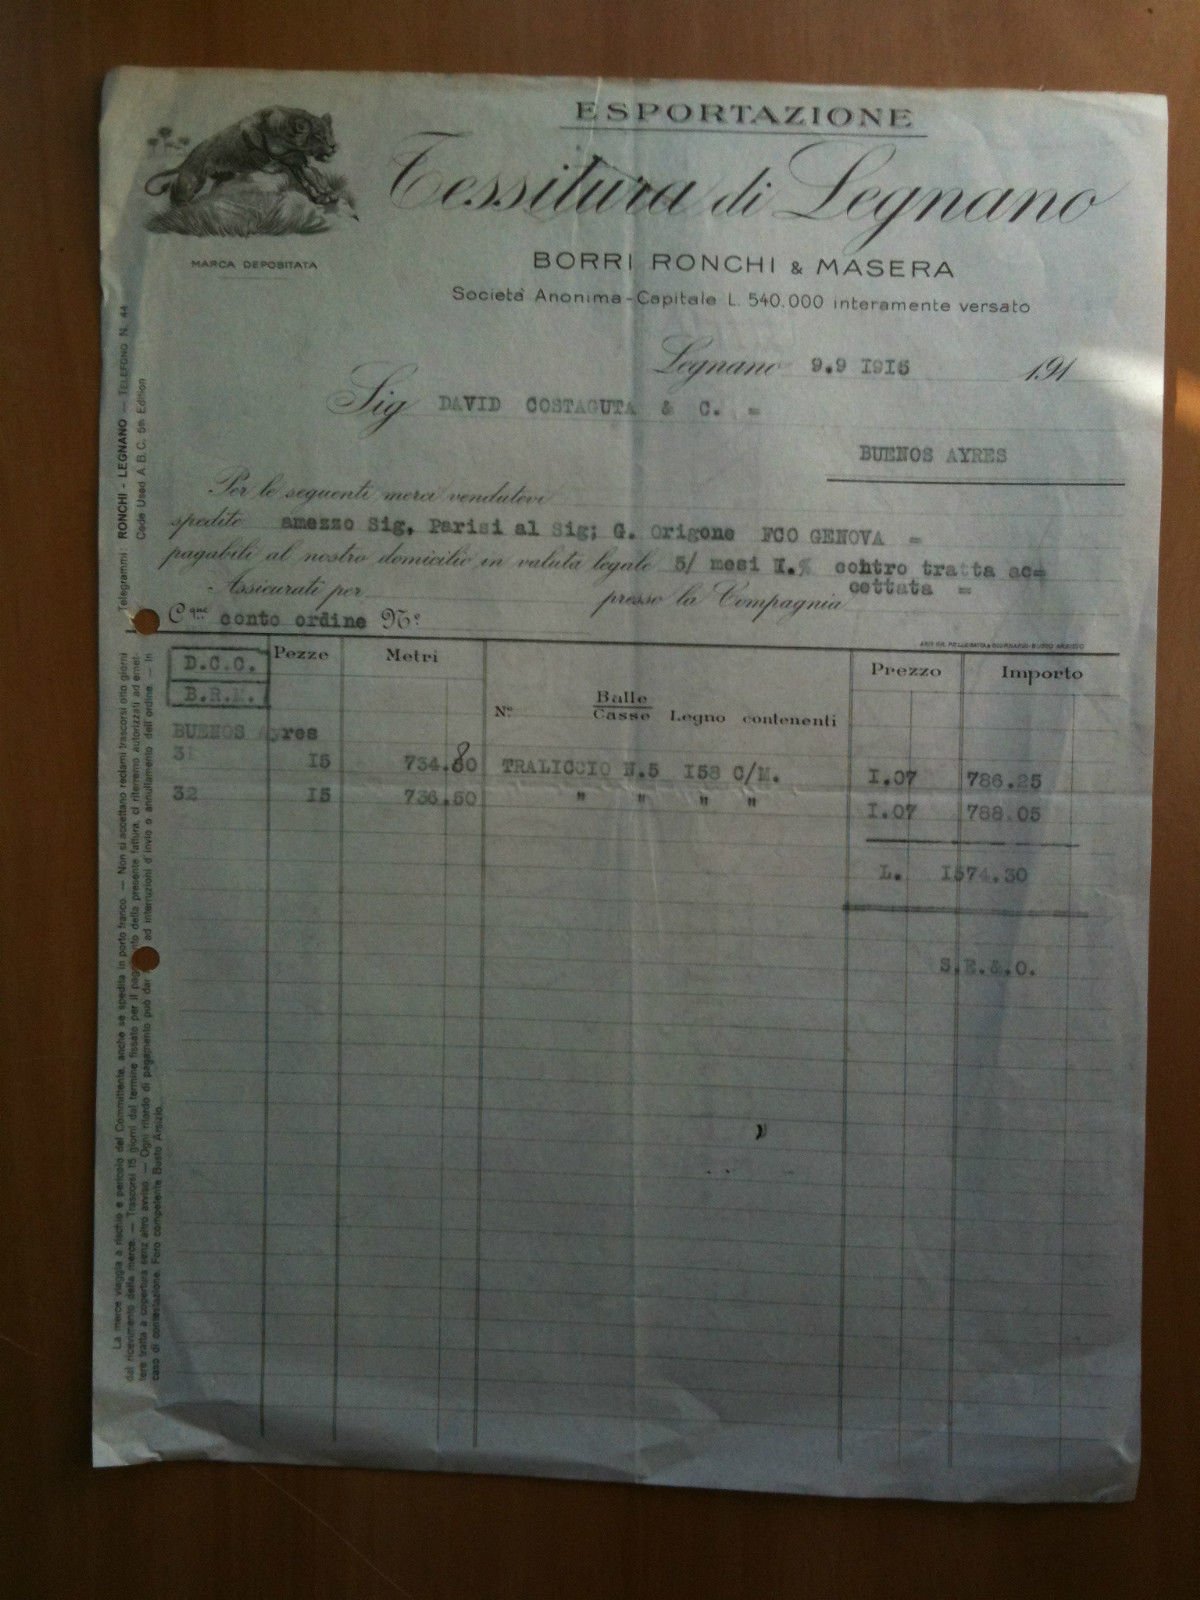 ESPORTAZIONE
Tessitura di Legnano
MARCA DEPOSITATA
BORRI RONCHI & MASERA
Società Anonima - Capitale L. 540.000 interamente versato
Legnano 9.9 1915 191
Sig DAVID COSTAGUTA & C. =
BUENOS AYRES
Per le seguenti merci vendutevi
spedite amezzo Sig. Parisi al Sig; G. Origone FCO GENOVA =
pagabili al nostro domicilio in valuta legale 5/ mesi I.% contro tratta ac=
cettata =
Assicurati per presso la Compagnia
C que conto ordine N.º
Telegrammi: RONCHI - LEGNANO — TELEFONO N. 44
Code Used A.B.C. 5th Edition
D.C.C. Pezze Metri Prezzo Importo
B.R.M.
N.º Balle Casse Legno contenenti
BUENOS Ayres
31 15 734.80 TRALICCIO N.5 158 C/M. I.07 786.25
32 15 736.50 " " " " I.07 788.05
L. 1574.30
S.E.&O.
La merce viaggia a rischio e pericolo del Committente, anche se spedita in porto franco. — Non si accettano reclami trascorsi otto giorni
dal ricevimento della merce. — Trascorsi 15 giorni dal termine fissato per il pagamento della presente fattura, ci riterremo autorizzati ad emet-
tere tratta a copertura senz'altro avviso. — Ogni ritardo di pagamento può dar ad interruzioni d'invio o annullamento dell'ordine. — In
caso di contestazione, Foro competente Busto Arsizio.